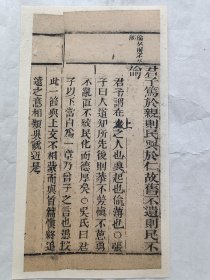 君子篤於親則民興於仁故舊不遺則民不
偷
君子謂在上之人也興起也偷薄也○張
子曰人道知所先後則恭不勞慎不葸勇
不亂直不絞民化而德厚矣○吳氏曰君
子以下當自爲一章乃曾子之言也愚按
此一節與上文不相蒙而與首篇慎終追
遠之意相類吳說近是